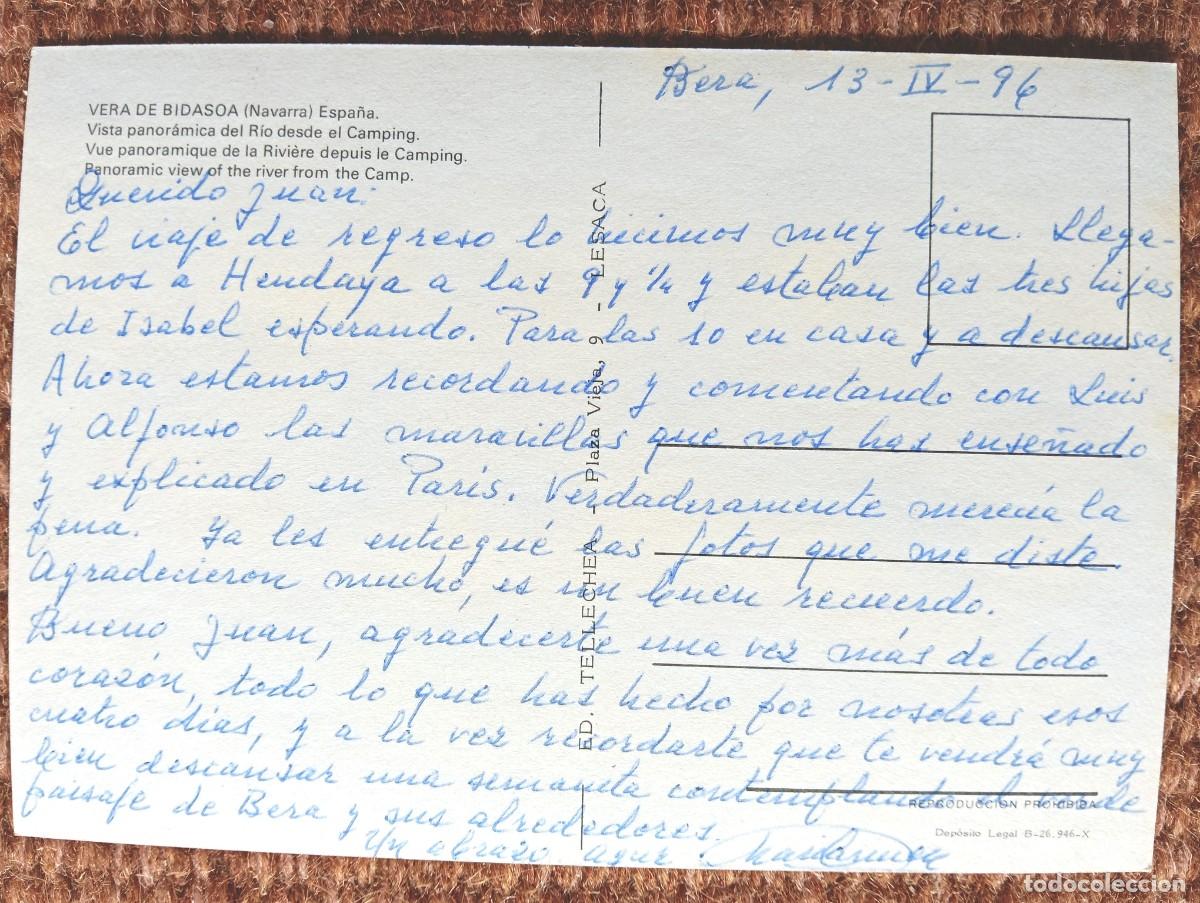 Bera, 13-IV-96
VERA DE BIDASOA (Navarra) España.
Vista panorámica del Río desde el Camping.
Vue panoramique de la Rivière depuis le Camping.
Panoramic view of the river from the Camp.
Querido Juan:
El viaje de regreso lo hicimos muy bien. Llega-
mos a Hendaya a las 9 y 1/4 y estaban las tres hijas
de Isabel esperando. Para las 10 en casa y a descansar.
Ahora estamos recordando y comentando con Luis
y Alfonso las maravillas que nos has enseñado
y explicado en París. Verdaderamente merecía la
pena. Ya les entregué las fotos que me diste.
Agradecieron mucho, es un buen recuerdo.
Bueno Juan, agradecerte una vez más de todo
corazón, todo lo que has hecho por nosotras esos
cuatro días, y a la vez recordarte que te vendrá muy
bien descansar una semanita contemplando el verde
paisaje de Bera y sus alrededores.
Un abrazo. Agur.
ED. TELLECHEA - Plaza Vieja, 9 - LESACA
REPRODUCCION PROHIBIDA
Depósito Legal B-26.946-X
todocoleccion